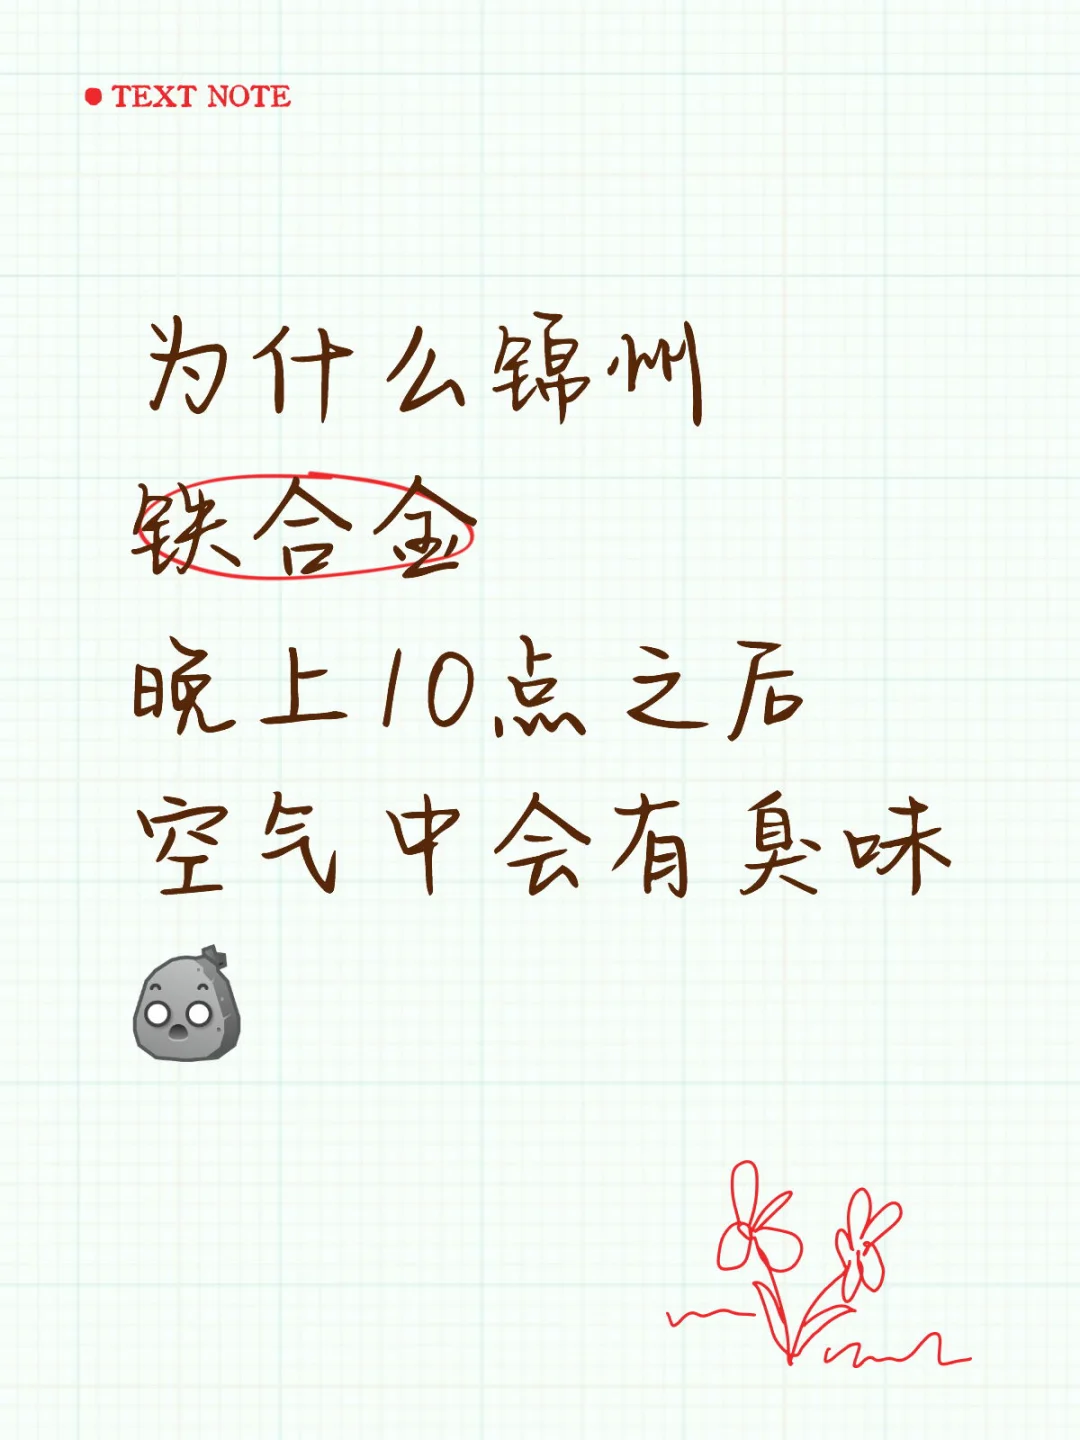 TEXT NOTE
为什么锦州
铁合金
晚上10点之后
空气中会有臭味